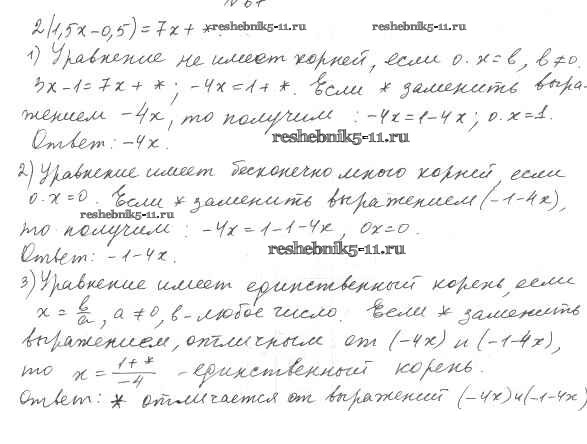 № 67
2(1,5x-0,5)=7x+*
reshebnik5-11.ru reshebnik5-11.ru
1) Уравнение не имеет корней, если 0·x=b, b≠0.
3x-1=7x+*; -4x=1+*. Если * заменить выра-
жением -4x, то получим: -4x=1-4x; 0·x=1.
Ответ: -4x. reshebnik5-11.ru
2) Уравнение имеет бесконечно много корней, если
0·x=0. Если * заменить выражением (-1-4x),
reshebnik5-11.ru
то получим: -4x=1-1-4x, 0x=0.
Ответ: -1-4x. reshebnik5-11.ru
3) Уравнение имеет единственный корень, если
x=b/a, a≠0, b-любое число. Если * заменить
выражением, отличным от (-4x) и (-1-4x),
то x=(1+*)/(-4) - единственный корень.
Ответ: * отличается от выражений (-4x) и (-1-4x)